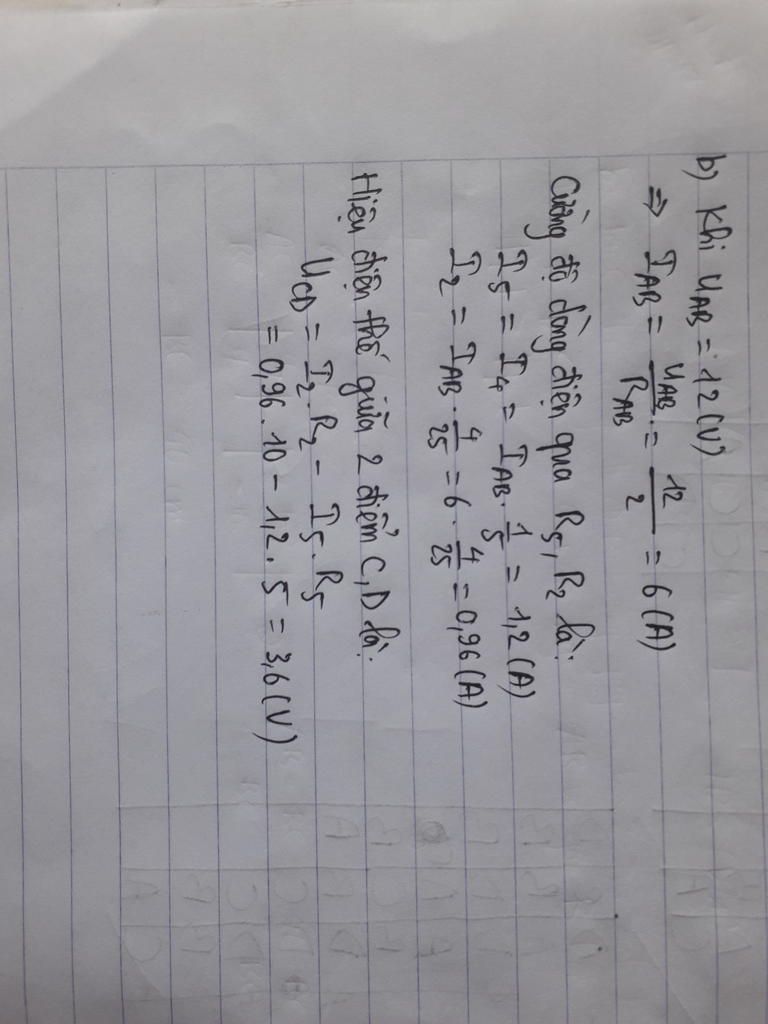 b) Khi U_AB = 12 (V)
⇒ I_AB = U_AB / R_AB = 12 / 2 = 6 (A)
Cường độ dòng điện qua R_5, R_2 là:
I_5 = I_4 = I_AB . 1/5 = 1,2 (A)
I_2 = I_AB . 4/25 = 6 . 4/25 = 0,96 (A)
Hiệu điện thế giữa 2 điểm C, D là:
U_CD = I_2 . R_2 - I_5 . R_5
= 0,96 . 10 - 1,2 . 5 = 3,6 (V)